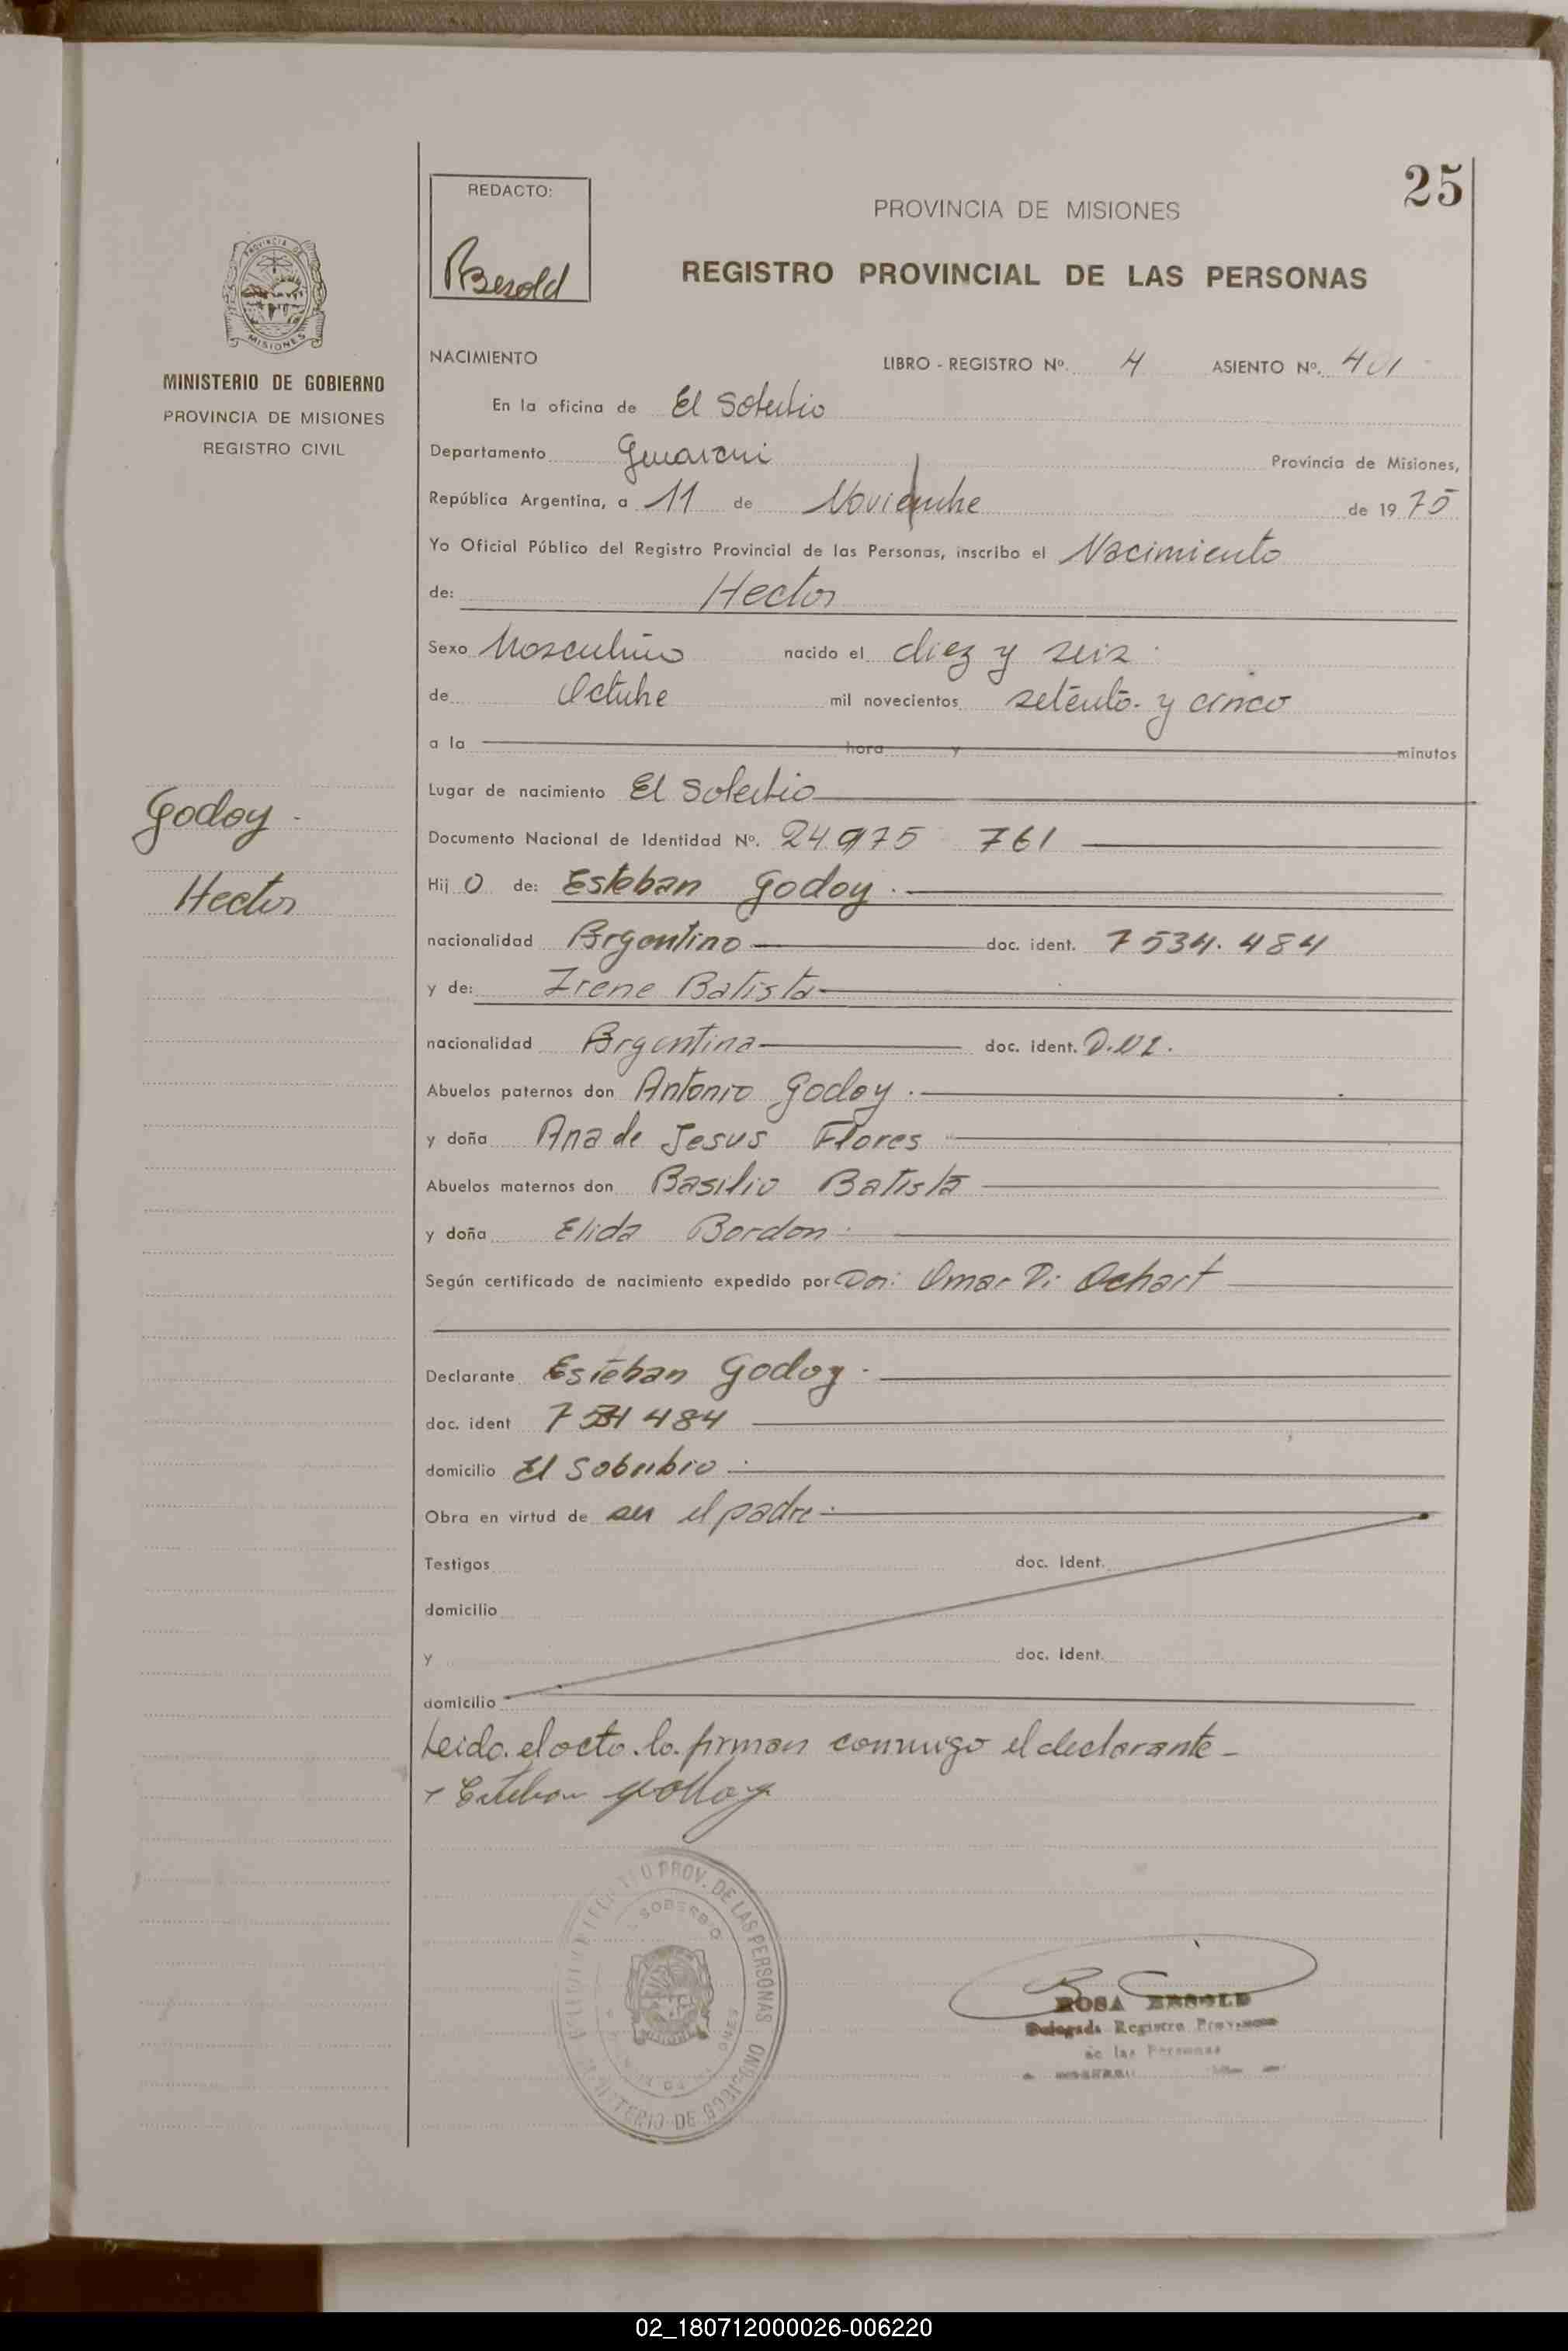 25
REDACTO:
RBesold
PROVINCIA DE MISIONES
REGISTRO PROVINCIAL DE LAS PERSONAS
PROVINCIA DE
MISIONES
MINISTERIO DE GOBIERNO
PROVINCIA DE MISIONES
REGISTRO CIVIL
NACIMIENTO LIBRO - REGISTRO Nº. 4 ASIENTO Nº. 401
En la oficina de El Soberbio
Departamento Guarani Provincia de Misiones,
República Argentina, a 11 de Noviembre de 1975
Yo Oficial Público del Registro Provincial de las Personas, inscribo el Nacimiento
de: Hector
Sexo Masculino nacido el diez y seis
de Octubre mil novecientos setenta y cinco
a la hora y minutos
Lugar de nacimiento El Soberbio
Godoy
Documento Nacional de Identidad Nº. 24.975 761
Hector
Hij o de: Esteban Godoy.
nacionalidad Argentino doc. ident. 7534.484
y de: Irene Batista
nacionalidad Argentina doc. ident.
Abuelos paternos don Antonio Godoy.
y doña Ana de Jesus Flores
Abuelos maternos don Basilio Batista
y doña Elida Bordon
Según certificado de nacimiento expedido por Omar Ochart
Declarante Esteban Godoy.
doc. ident 7534 484
domicilio El Soberbio
Obra en virtud de ser el padre
Testigos doc. Ident.
domicilio
y doc. Ident.
domicilio
Leido el acto lo firman conmigo el declarante
Esteban godoy
PROV. DE LAS PERSONAS
SOBERBIO
ROSA BESOLD
Delegada Registro Provincial
de las Personas
02_180712000026-006220